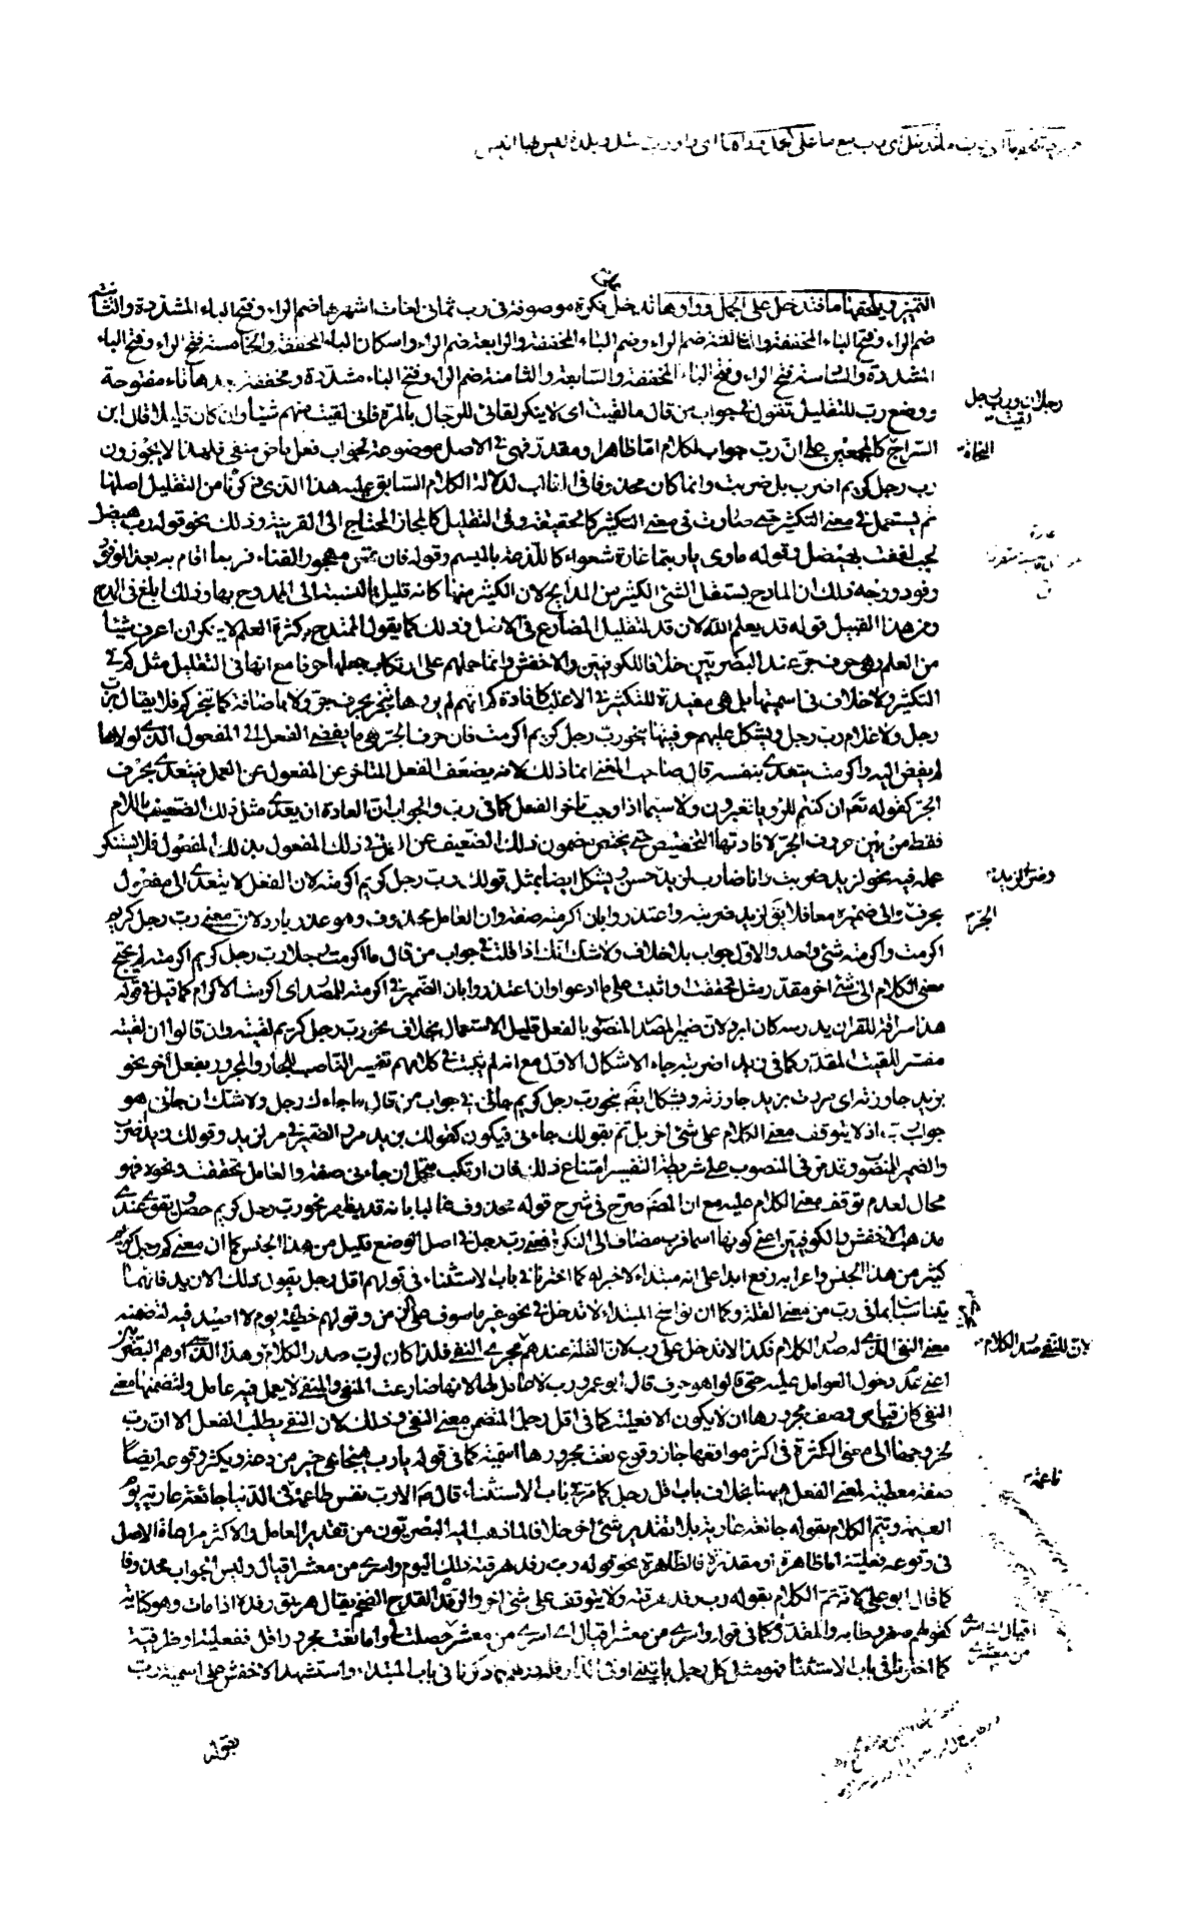 التميز ويلحقها ما فتدخل على الجمل وواوها تدخل نكرة موصوفة في رب ثماني لغات اشهرها ضم الراء وفتح الباء المشددة والثانية
ضم الراء وفتح الباء المخففة والثالثة ضم الراء وضم الباء المخففة والرابعة ضم الراء واسكان الباء المخففة والخامسة فتح الراء وفتح الباء
المشددة والسادسة فتح الراء وفتح الباء المخففة والسابعة والثامنة ضم الراء وفتح الباء مشددة ومخففة بعدها تاء مفتوحة
ووضع رب للتقليل تقول في جواب من قال ما لقيت رجلا اي لا ينكر لقائي للرجال بالمرة فاني لقيت منهم شيئا وان كان قليلا قال ابن
السراج كالمجمعين على ان رب جواب لكلام اما ظاهر او مقدر فهي في الاصل موضوعة لجواب فعل ماض منفي فلهذا لا يجوزون
رب رجل كريم اضرب بل ضربت وانما كان محذوفا في الغالب لدلالة الكلام السابق عليه هذا الذي ذكرنا من التقليل اصلها
ثم يستعمل في معنى التكثير حتى صارت في معنى التكثير كالحقيقة وفي التقليل كالمجاز المحتاج الى القرينة وذلك نحو قوله رب هيضل
لجب لففت بهيضل وقوله ماوي يا ربتما غارة شعواء كاللذعة بالميسم وقوله فان تمس مهجور الفناء فربما اقام به بعد الوفود
وفود ووجه ذلك ان المادح يستقل الشئ الكثير من المدايح لان الكثير منها كانه قليل بالنسبة الى الممدوح بها وذلك ابلغ في المدح
ومن هذا القبيل قوله قد يعلم الله لان قد لتقليل المضارع في الاصل وذلك كما يقول المتمدح بكثرة العلم لا ينكر ان اعرف شيئا
من العلم وهي حرف جر عند البصريين خلافا للكوفيين والاخفش وانما حملهم على ارتكاب جعلها حرفا مع انها في التقليل مثل كم في
التكثير ولا خلاف في اسميتها بل هي مفيدة للتكثير في الاغلب كافادة كم انهم لم يروها تنجر بحرف جر ولا باضافة كما تنجر كم فلا يقال برب
رجل ولا غلام رب رجل ويشكل عليهم حرفيتها بنحو رب رجل كريم اكرمت فان حرف الجر هو ما يفضي الفعل الى المفعول الذي لولاها
لم يفض اليه واكرمت يتعدى بنفسه قال صاحب المغني انما ذلك لانه يضعف الفعل المتاخر عن المفعول عن العمل فيتعدى بحرف
الجر كقوله تعم ان كنتم للرؤيا تعبرون ولا سيما اذا وجب تاخر الفعل كما في رب والجواب ان العادة ان يعدى مثل ذلك الضعيف باللام
فقط من بين حروف الجر لافادتها التخصيص حتى يختص مضمون ذلك الضعيف عن العمل في ذلك المفعول بذلك المفعول فلا يستنكر
عمله فيه نحو لزيد ضربت وانا ضارب لزيد حسن ويشكل ايضا بمثل قولك رب رجل كريم اكرمته لان الفعل لا يتعدى الى مفعول
بحرف والى ضميره معا فلا يق لزيد ضربته واعتذروا بان اكرمته صفة وان العامل محذوف وهو عذر بارد لان معنى رب رجل كريم
اكرمت واكرمته شئ واحد والاول جواب بلا خلاف ولا شك انك اذا قلت في جواب من قال ما اكرمت رجلا رب رجل كريم اكرمته لم يحتج
معنى الكلام الى شئ اخر مقدر مثل تحققت واثبت على ما ادعوا وان اعتذروا بان الضمير في اكرمته للمصدر اي اكرمت الاكرام كما قيل في قوله
هذا سراقة للقران يدرسه كان ابرد لان ضمير المصدر المنصوب بالفعل قليل الاستعمال بخلاف نحو رب رجل كريم لقيته وان قالوا ان لقيته
مفسر للقيت المقدر كما في زيدا ضربته جاء الاشكال الاول مع انه لم يثبت في كلامهم تفسير الناصب للجار والمجرور بفعل اخر نحو
بزيد جاوزته اي مررت بزيد جاوزته ويشكل ايضا بنحو رب رجل كريم جاءني في جواب من قال ما جاءك رجل ولا شك ان جاءني هو
جواب اذ لا يتوقف معنى الكلام على شئ اخر بل تم بقولك جاءني فيكون كقولك بزيد مر والضمير في مر لزيد وقولك زيدا ضرب
والضمير المنصوب وقد مر في المنصوب على شريطة التفسير امتناع ذلك فان ارتكب متمحل ان جاءني صفة والعامل تحققت ونحوه فهو
محال لعدم توقف معنى الكلام عليه مع ان المص صرح في شرح قوله محذوف غالبا بانه قد يظهر نحو رب رجل كريم حصل ويقوى عندي
مذهب الاخفش والكوفيين اعني كونها اسما فرب مضاف الى النكرة فمعنى رب رجل في اصل الوضع قليل من هذا الجنس كما ان معنى كم رجل كريم
كثير من هذا الجنس واعرابه رفع ابدا على انه مبتداء لا خبر له كما اخترنا في باب الاستثناء في قولهم اقل رجل يقول ذلك الا زيد فانهما
يتناسبان بما في رب من معنى القلة وكما ان نواسخ المبتداء لا تدخل في نحو غير ماسوف على زمن وقولهم خطيئة يوم لا اصيد فيه لتضمنه
معنى النفي الذي له صدر الكلام فكذا لا تدخل على رب لان القلة عندهم تجري مجرى النفي فلذا كان لرب صدر الكلام وهذا الذي اوهم البصريين
اعني عدم دخول العوامل عليه حتى قالوا هو حرف قال ابو عمرو رب لا عامل لها لانها ضارعت النفي والنفي لا يعمل فيه عامل ولتضمنها معنى
النفي كان قياس وصف مجرورها ان لا يكون الا فعلية كما في اقل رجل المتضمن معنى النفي وذلك لان النفي يطلب الفعل الا ان رب
لخروجها الى معنى الكثرة في اكثر مواقعها جاز وقوع نعت مجرورها اسمية كما في قوله يا رب هيجا هي خير من دعة ويكثر وقوعه ايضا
صفة معطية لمعنى الفعل ههنا بخلاف باب قل رجل كما مر في باب الاستثناء قال الا رب نفس طاعمة في الدنيا جائعة عارية يوم
القيمة ويتم الكلام بقوله جائعة عارية بلا تقدير شئ اخر خلافا لما ذهب اليه البصريون من تقدير العامل والاكثر مراعاة الاصل
في وقوعه فعلية اما ظاهرة او مقدرة فالظاهرة نحو قوله رب رفد هرقته ذلك اليوم واسرى من معشر اقيال وليس الجواب محذوفا
كما قال ابو علي لانه تم الكلام بقوله رب رفد هرقته ولا يتوقف على شئ اخر والرفد القدح الضخم يقال هريق رفده اذا مات وهو كناية
كقولهم صفر وطابه والمقدر كما في قوله واسرى من معشر اقيال اي اسرى من معشر حصلت واما نعت مجرور اقل ففعلية او ظرفية
كما اخترنا في باب الاستثناء فهو مثل كل رجل ياتيني او في الدار فله درهم كما ذكرنا في باب المبتداء واستشهد الاخفش على اسمية رب
بقوله
رجلا ان ورب رجل لقيت
النحاة
الجر
لان للنفي صدر الكلام
ناعمة
اقيال اي اسرى من معشر